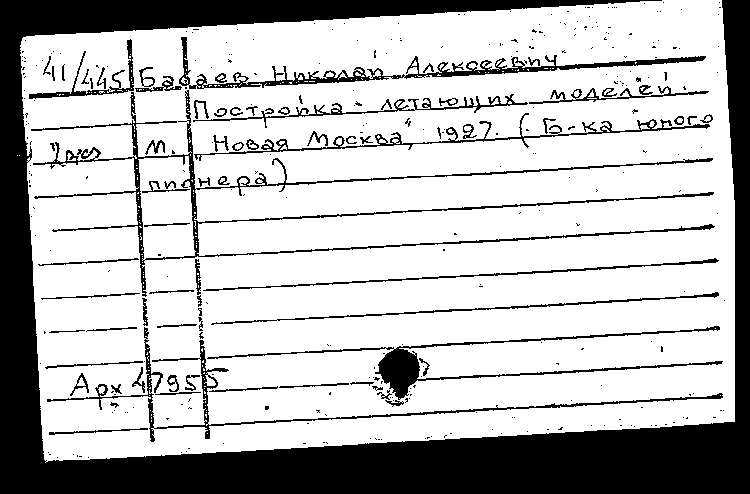 41/445 Бабаев Николай Алексеевич
Постройка летающих моделей.
2 экз М., "Новая Москва", 1927. (Б-ка юного
пионера)
Арх 47955